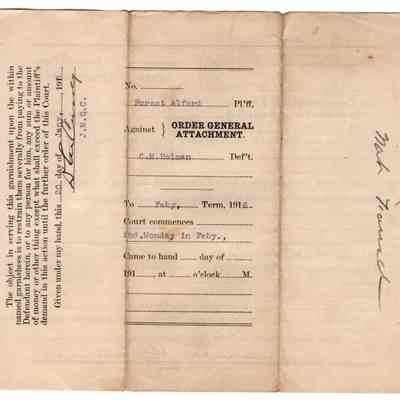 The object in serving this garnishment upon the within
named garnishees is to restrain them severally from paying to the
Defendant herein, or to any person for him, any sum or amount
of money or other thing except what shall exceed the Plaintiff's
demand in this action until the further order of this Court.
Given under my hand, this 20 day of Jany, 191
J.M.Q.C.
No.
Forest Alford Pl'ff,
Against } ORDER GENERAL
ATTACHMENT.
C.M.Holman Def't.
To Feby, Term, 191
Court commences
2nd.Monday in Feby.,
Came to hand day of
191 , at o'clock M.
Not Found